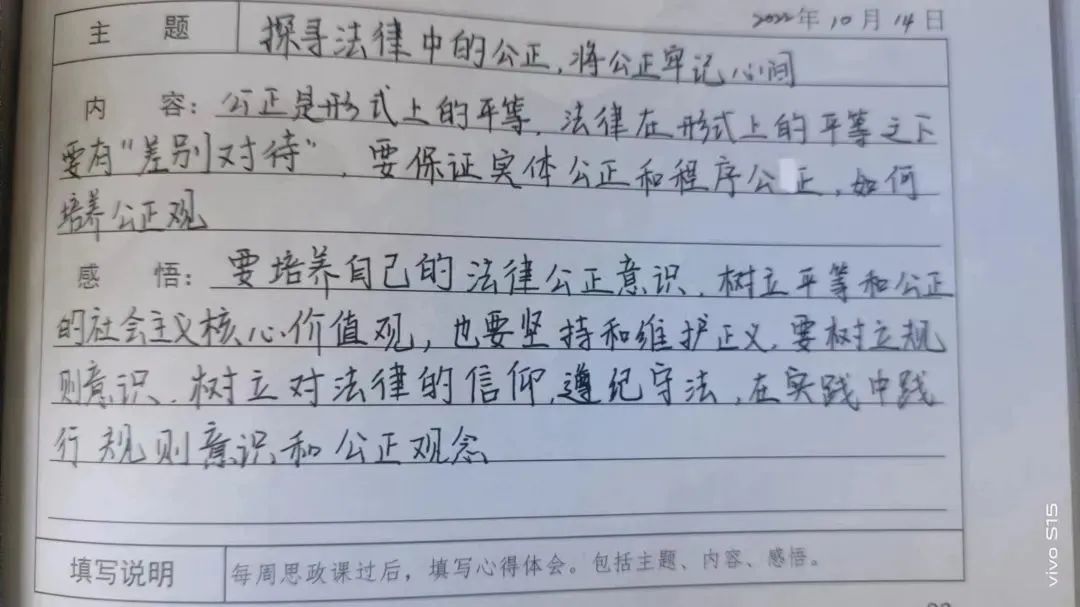 2022年10月14日
主 题 探寻法律中的公正,将公正牢记心间
内 容:公正是形式上的平等,法律在形式上的平等之下
要有“差别对待”,要保证实体公正和程序公正,如何
培养公正观
感 悟:要培养自己的法律公正意识,树立平等和公正
的社会主义核心价值观,也要坚持和维护正义,要树立规
则意识,树立对法律的信仰,遵纪守法,在实践中践
行规则意识和公正观念
填写说明 每周思政课过后,填写心得体会。包括主题、内容、感悟。
vivo S15